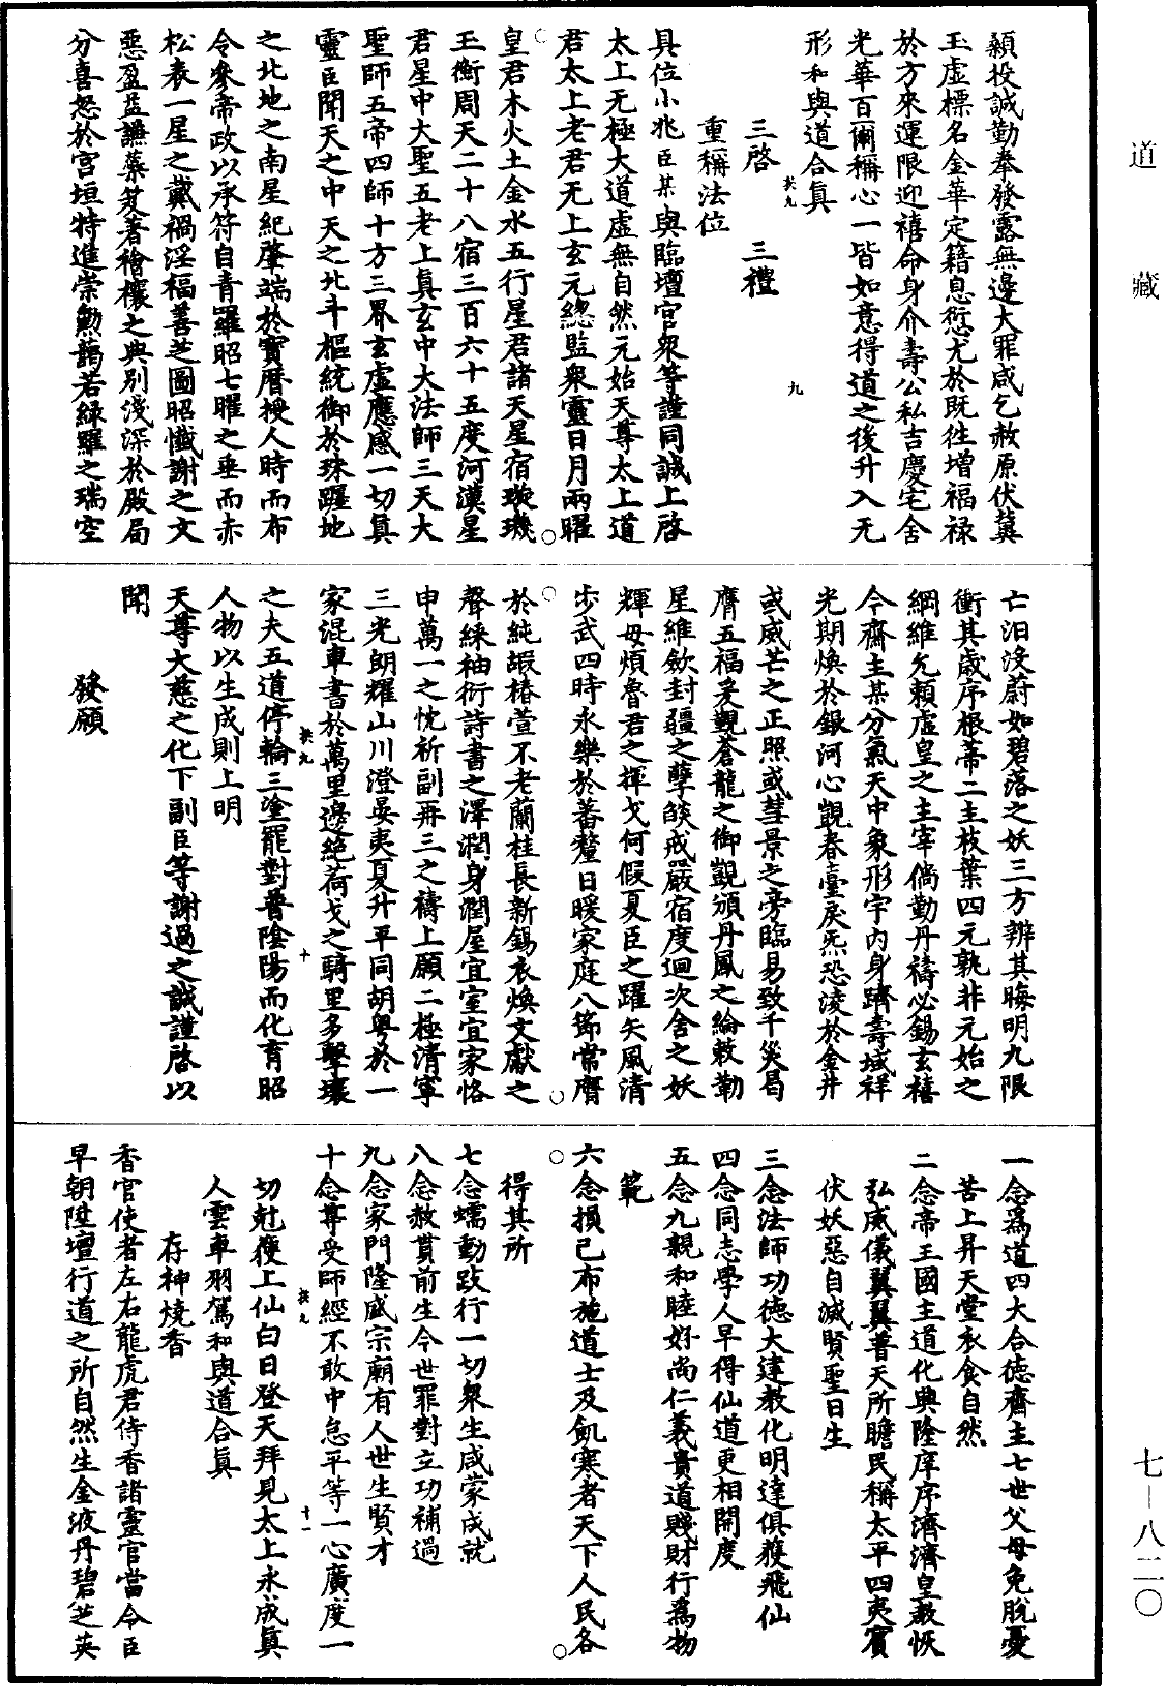 顙投誠勤拳發露無邊大罪咸乞赦原伏冀
玉虛標名金華定籍息愆尤於既往增福祿
於方來運限迎禧命身介壽公私吉慶宅舍
光華百爾稱心一皆如意得道之後升入无
形和與道合眞
三啓　三禮
重稱法位
具位小兆臣某與臨壇官衆等謹同誠上啓
太上无極大道虛無自然元始天尊太上道
君太上老君无上玄元總監衆靈日月兩曜
皇君木火土金水五行星君諸天星宿璇璣
玉衡周天二十八宿三百六十五度河漢星
君星中大聖五老上眞玄中大法師三天大
聖師五帝四師十方三界玄虛應感一切眞
靈臣聞天之中天之北斗樞統御於珠躔地
之北地之南星紀肇端於寶曆授人時而布
令參帝政以承符自青羅昭七曜之垂而赤
松表一星之戴禍淫福善芝圖昭懺謝之文
惡盈益謙蘂笈著禬禳之典別淺深於殿局
分喜怒於宮垣特進崇勲藹若綠羅之瑞空
亡汨沒蔚如碧落之妖三方辨其晦明九限
衝其歲序根蒂二主枝葉四元孰非元始之
綱維允賴虛皇之主宰倘勤丹禱必錫玄禧
今齋主某分氣天中象形宇內身躋壽域祥
光期煥於銀河心覬春臺戾炁恐淩於金井
或威芒之正照或彗景之旁臨易致千災曷
膺五福爰觀蒼龍之御覬頒丹鳳之綸敕勒
星維歛封疆之孽燄戒嚴宿度迴次舍之妖
輝毋煩魯君之揮戈何假夏臣之躍矢風清
步武四時永樂於蕃釐日暖家庭八節常膺
於純嘏椿萱不老蘭桂長新錫衣煥文獻之
聲綵袖衍詩書之澤潤身潤屋宜室宜家恪
申萬一之忱祈副再三之禱上願二極清寧
三光朗耀山川澄晏夷夏升平同胡粤於一
家混車書於萬里邊絕荷戈之騎里多擊壤
之夫五道停輪三塗罷對普陰陽而化育昭
人物以生成則上明
天尊大慈之化下副臣等謝過之誠謹啓以
聞
發願
一念爲道四大合德齋主七世父母免脫憂
苦上昇天堂衣食自然
二念帝王國主道化興隆庠序濟濟皇教恢
弘威儀翼翼普天所瞻民稱太平四夷賓
伏妖惡自滅賢聖日生
三念法師功德大建教化明達俱獲飛仙
四念同志學人早得仙道更相開度
五念九親和睦好尚仁義貴道賤財行爲物
範
六念損己布施道士及飢寒者天下人民各
得其所
七念蠕動跂行一切衆生咸蒙成就
八念赦貰前生今世罪對立功補過
九念家門隆盛宗廟有人世生賢才
十念尊受師經不敢中怠平等一心廣度一
切尅獲上仙白日登天拜見太上永成眞
人雲車羽駕和與道合眞
存神燒香
香官使者左右龍虎君侍香諸靈官當令臣
早朝陞壇行道之所自然生金液丹碧芝英
道藏
七－八二〇